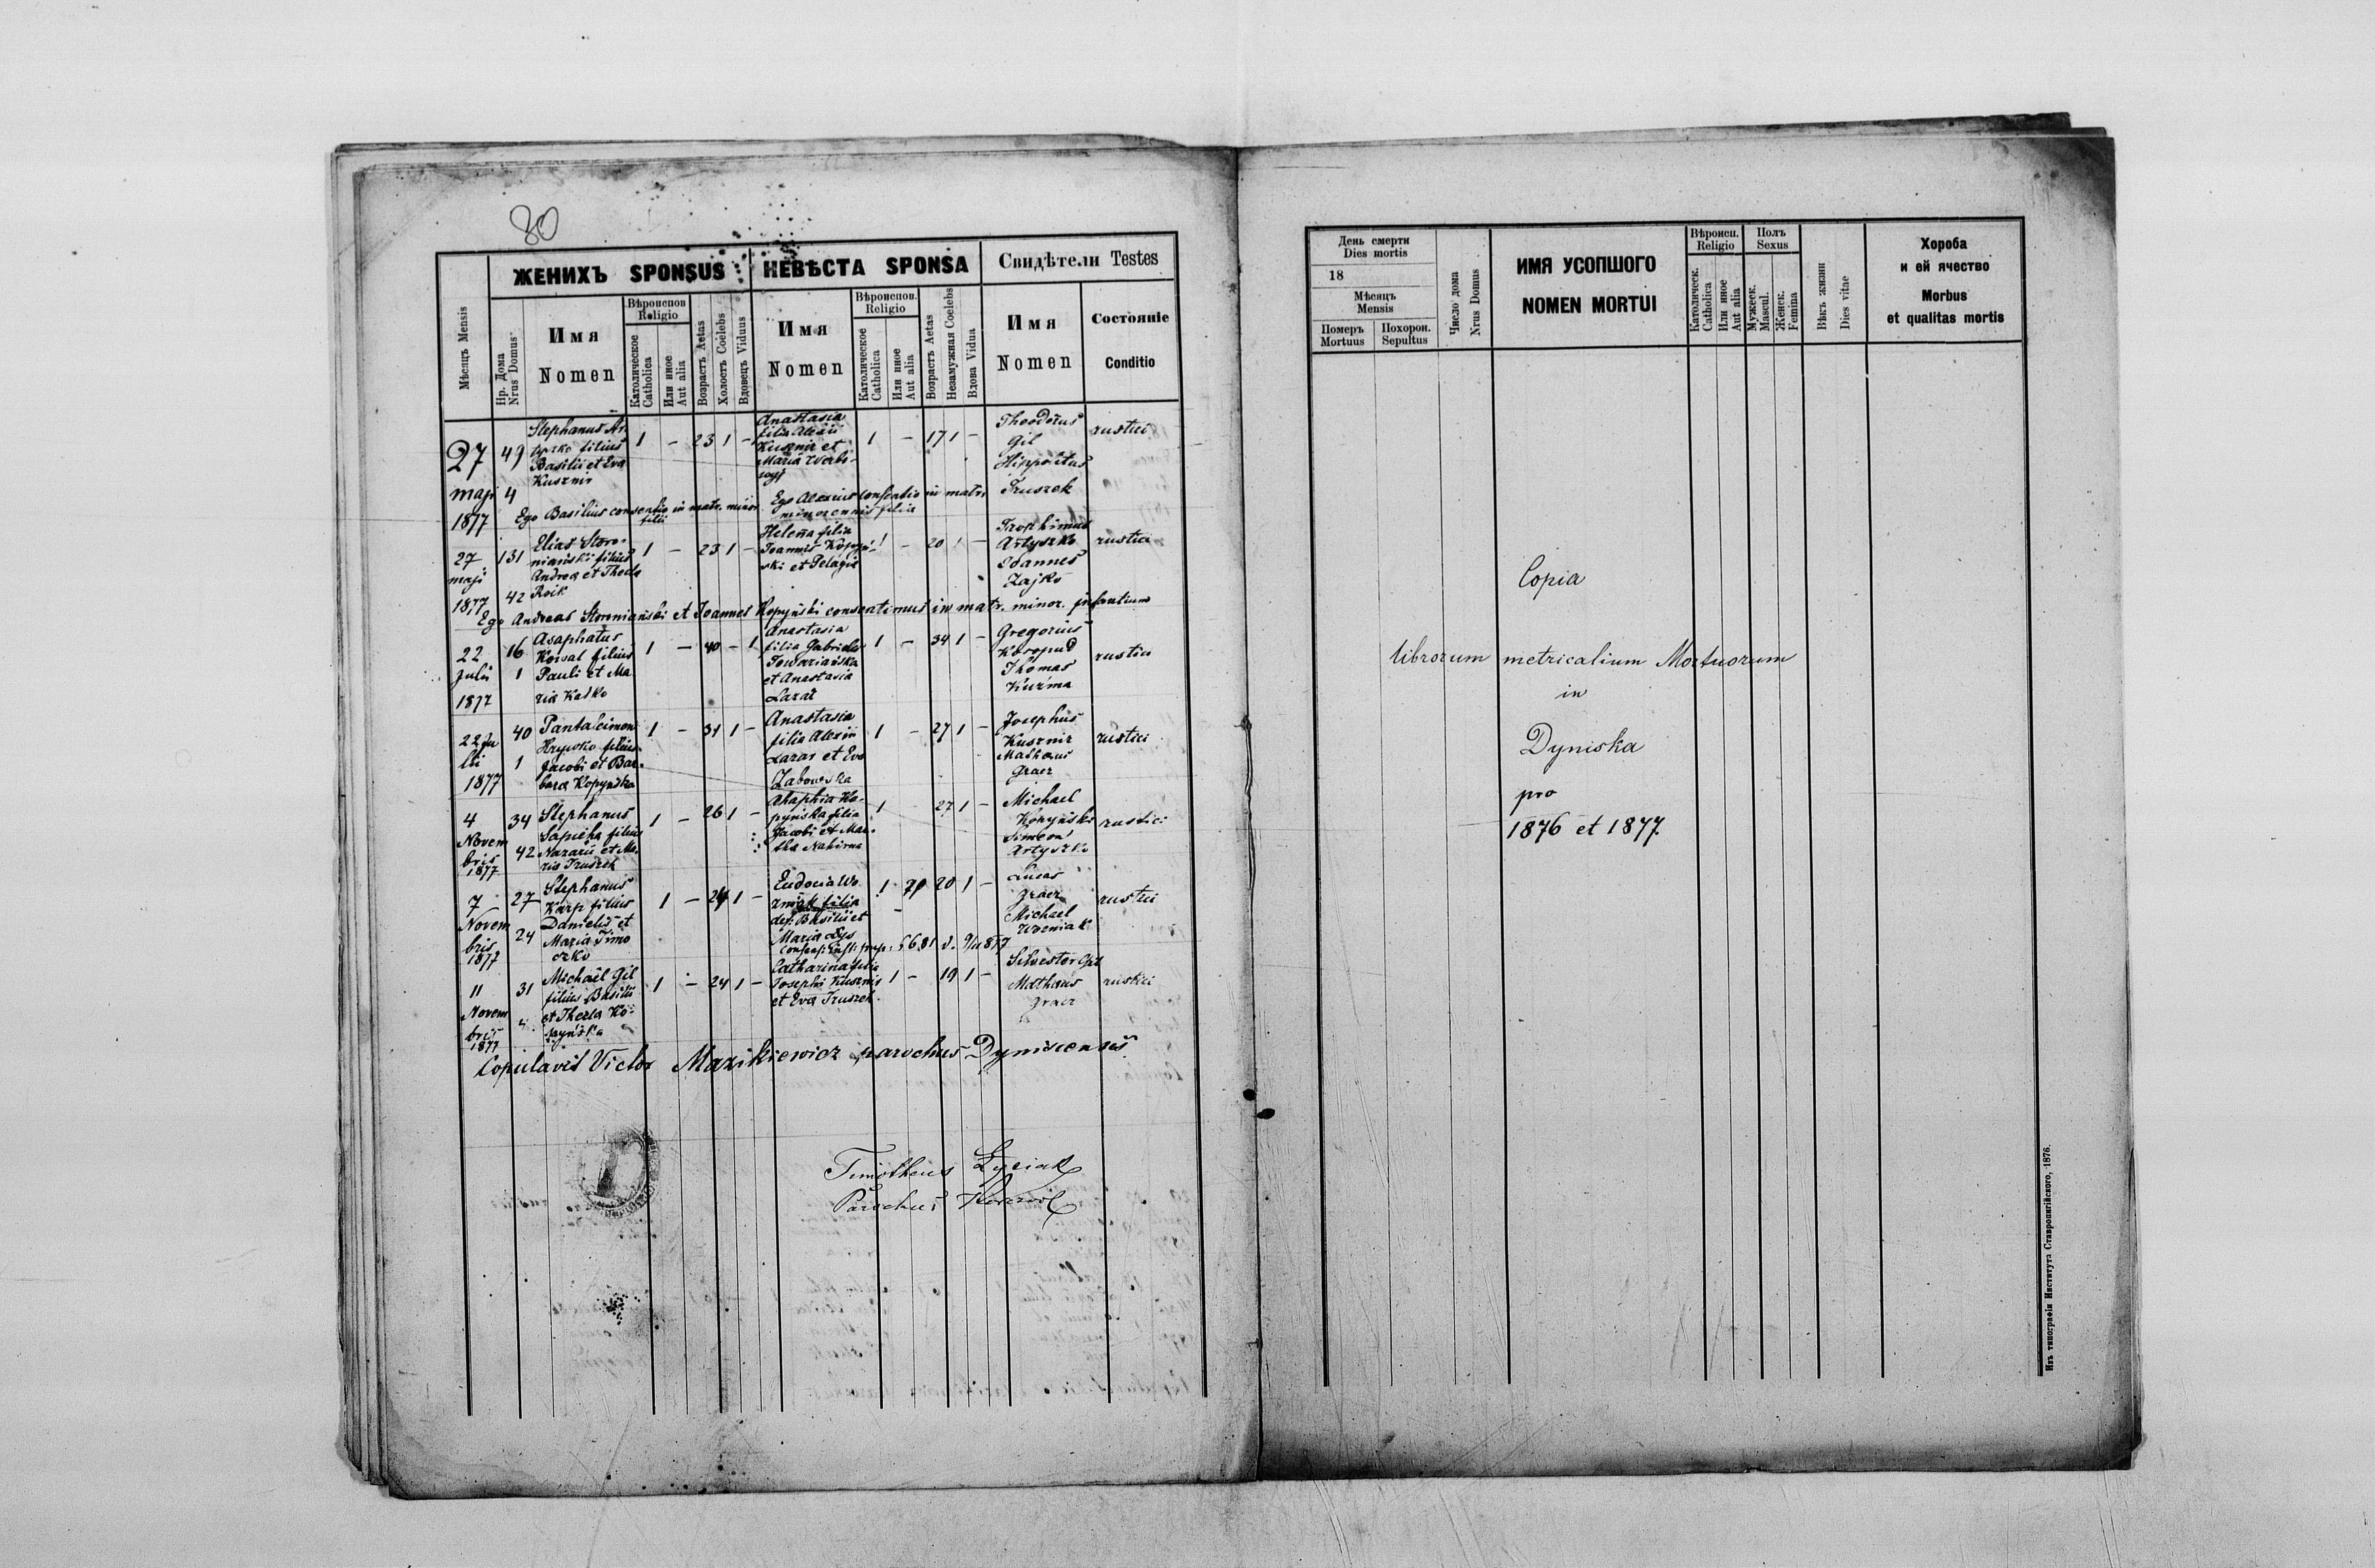 80
ЖЕНИХЪ SPONSUS НЕВѢСТА SPONSA Свидѣтели Testes
Мѣсяцъ Mensis
Нр. Дома
Nrus Domus
Имя
Nomen
Вѣроиспов
Religio
Католическое
Catholica
Или иное
Aut alia
Возрастъ Aetas
Холостъ Coelebs
Вдовецъ Viduus
Имя
Nomen
Вѣроиспов.
Religio
Католическое
Catholica
Или иное
Aut alia
Возрастъ Aetas
Незамужная Coelebs
Вдова Vidua
Имя
Nomen
Состоянiе
Conditio
27
maji
1877
49
4
Stephanus Ar-
tyszko filius
Basilii et Eva
Kusznir
1 – 23 1 –
Anastasia
filia Alexii
Kusznir et
Maria
1 – 17 1 –
Theodorus
Gil
Hippolitus
Truszek
rustici
Ego Basilius consentio in matr. minor.
filii
Ego Alexius consentio in matr.
minorennis filia
27
maji
1877
131
42
Elias Storo-
niański filius
Andrea et Thecla
Roik
1 – 23 1 –
Helena filia
Joannis Kopyń-
ski et Pelagia
1 – 20 1 –
Trophimus
Artyszko
Joannes
Zajko
rustici
Ego Andreas Storoniański et Joannes Kopyński consentimus in matr. minor. infantium
22
Julii
1877
16
1
Asaphatus
Kowal filius
Pauli et Ma
ria Kalko
1 – 40 – 1
Anastasia
filia Gabriela
Towariańska
et Anastasia
Lazar
1 – 34 1 –
Gregorius
Koropud
Thomas
Kuzma
rustici
22 Ju
lii
1877
40
1
Pantaleimon
Hrycko filius
Jacobi et Bar-
bara Kopyńska
1 – 31 1 –
Anastasia
filia Alexii
Lazar et Eva
1 – 27 1 –
Josephus
Kusznir
Mathaeus
Gracz
rustici
4
Novem
bris
1877
34
42
Stephanus
Sapieha filius
Nazarii et Ma-
ria Truszek
1 – 26 1 –
Ahaphia Ko-
pyńska filia
Jacobi et Mar-
tha Nahirna
1 27 1 –
Michael
Kopyński
Simeon
Artyszko
rustici
7
Novem
bris
1877
27
24
Stephanus
Karp filius
Danielis et
Maria Timo
czko
1 – 24 1 –
Eudocia Wo
zniak filia
def: Basilii et
Maria Lys
1 – 20 1 –
Lucas
Gracz
Michael
rustici
11
Novem
bris
1877
31
Michaël Gil
filius Basilii
et Thecla Ko-
pyńska
1 – 24 1 –
Catharina filia
Josephi Kusznir
et Eva Truszek
1 – 19 1 –
Silvester Gil
Mathaeus
Gracz
rustici
Copulavit Victor Mazikiewicz parochus Dyniscensis
Timotheus Łyciak
Parochus
День смерти
Dies mortis
18
Мѣсяцъ
Mensis
Померъ
Mortuus
Похорон.
Sepultus
Число дома
Nrus Domus
ИМЯ УСОПШОГО
NOMEN MORTUI
Вѣроисп.
Religio
Католическ.
Catholica
Или иное
Aut alia
Полъ
Sexus
Мужеск.
Mascul.
Женск.
Femina
Вѣкъ жизни
Dies vitae
Хороба
и ей ячество
Morbus
et qualitas mortis
Copia
librorum metricalium Mortuorum
in
Dyniska
pro
1876 et 1877.
Изъ типографiи Института Ставропигiйского, 1876.